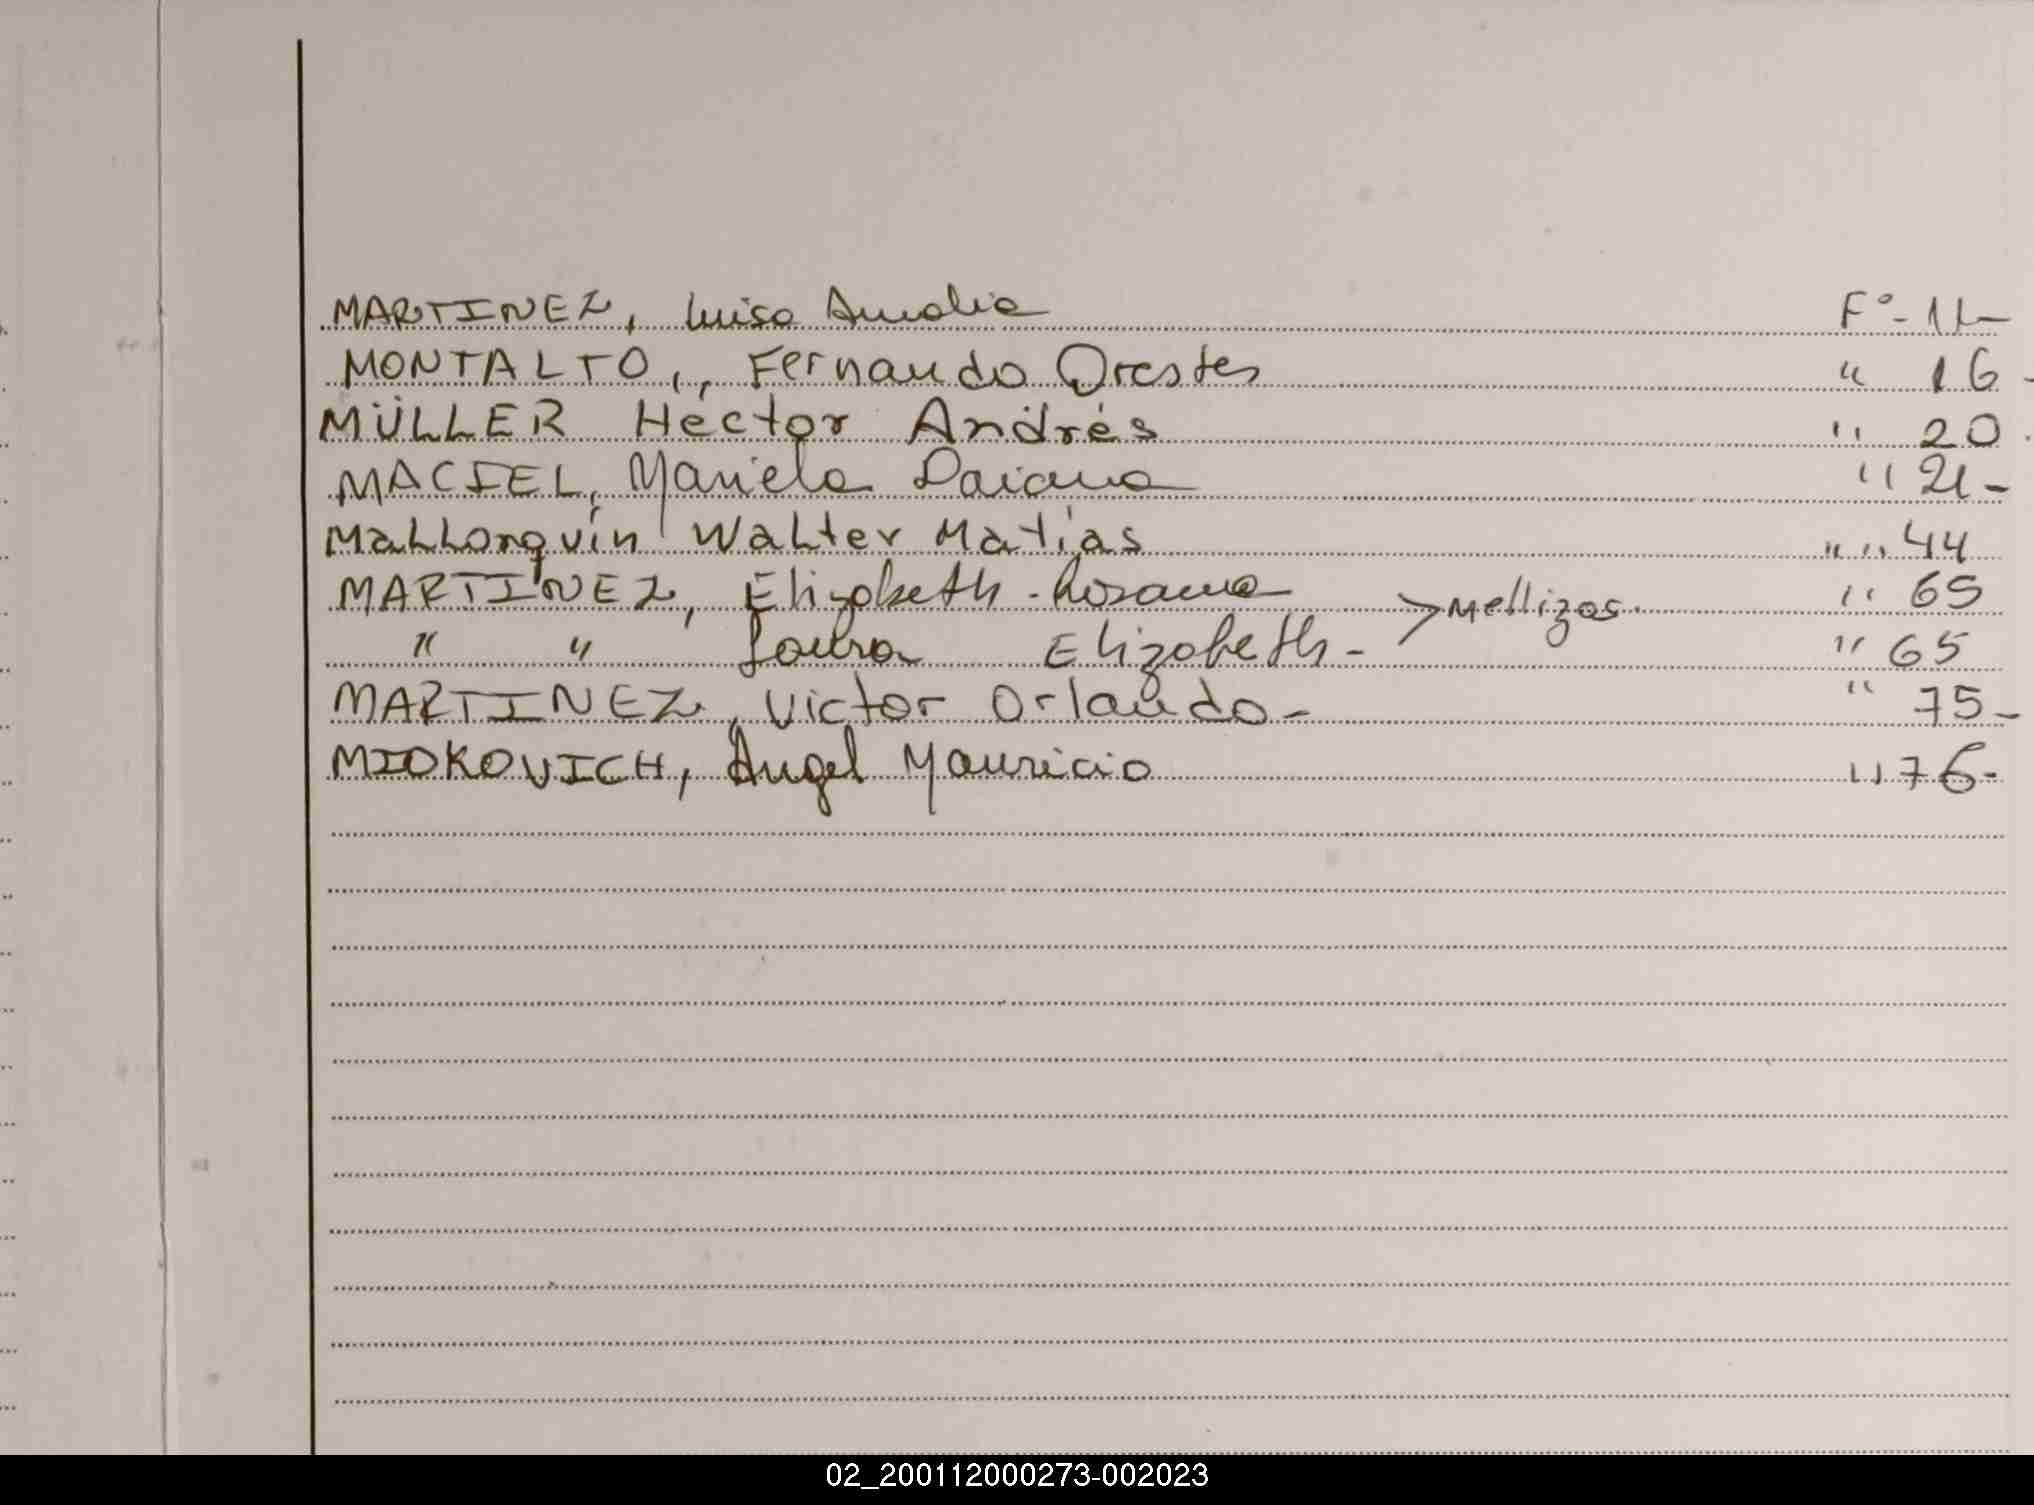 MARTINEZ, Luisa Amalia F°- 11-
MONTALTO,, Fernando Orestes " 16-
MÜLLER Héctor Andrés " 20-
MACIEL, Mariela Daiana " 21-
Mallorquín Walter Matías " " 44
MARTINEZ, Elizabeth-Rosana > Mellizas. " 65
" " Laura Elizabeth- " 65
MARTINEZ, Victor Orlando- " 75-
MIOKOVICH, Ángel Mauricio " 76-
02_200112000273-002023